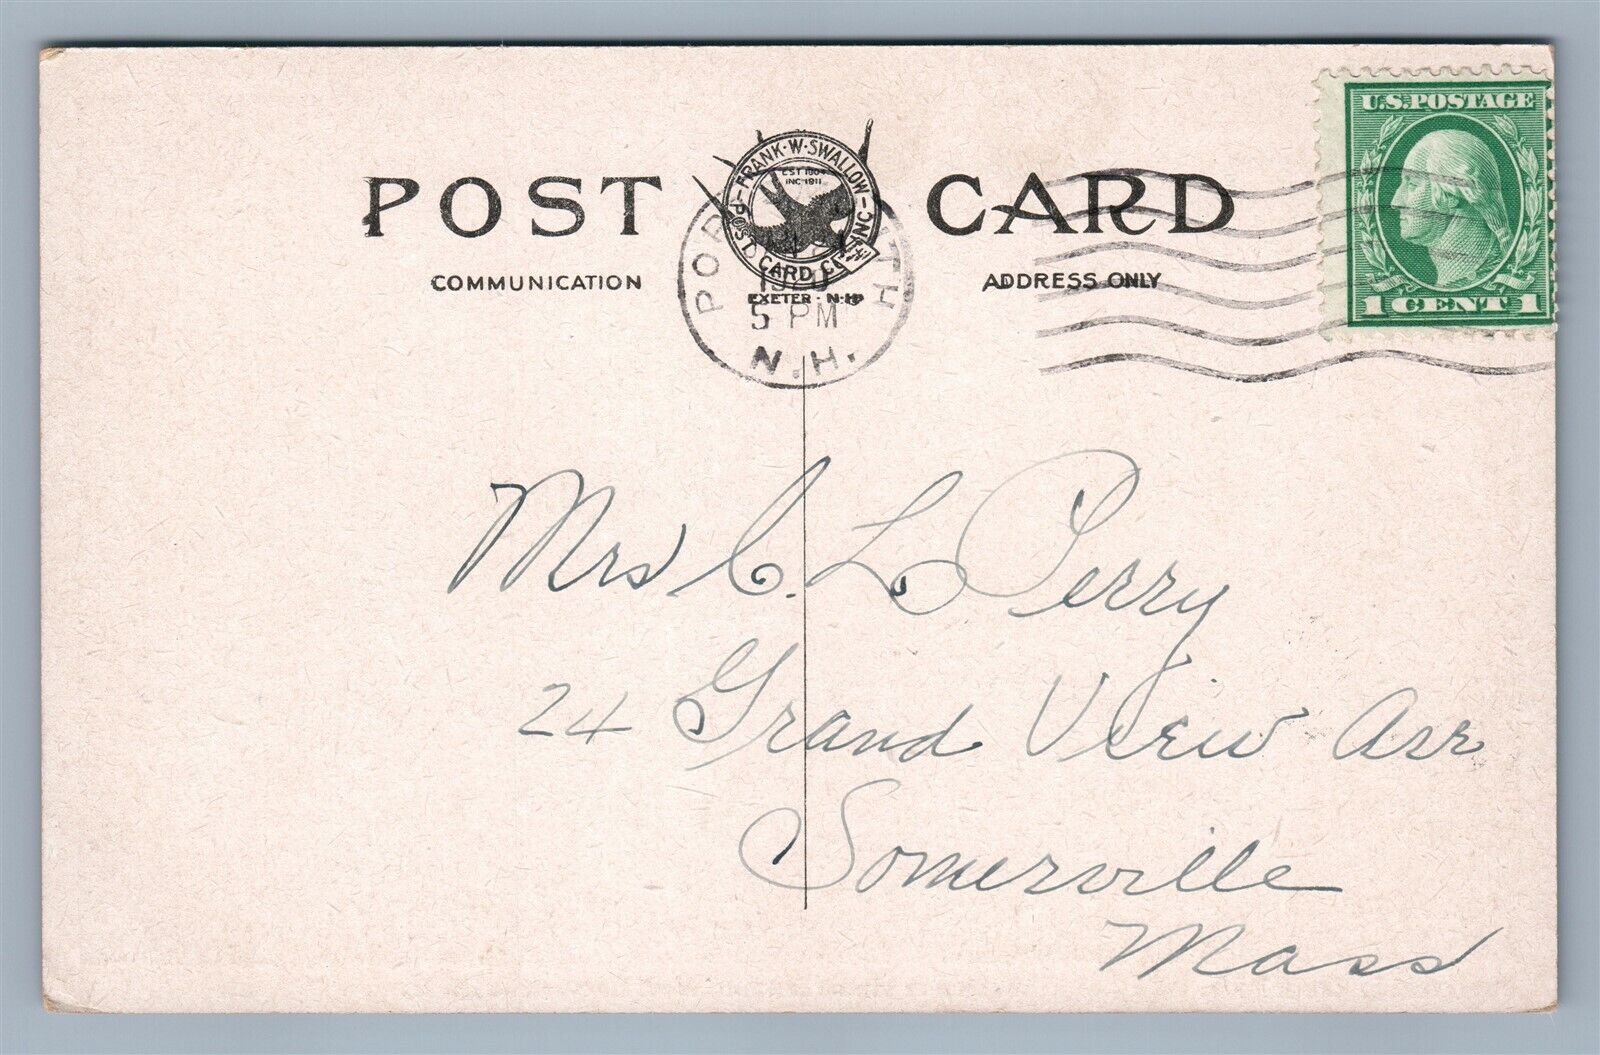 POST CARD
FRANK·W·SWALLOW
POST CARD CO. INC
EST 1904
INC·1911
EXETER·N·H
COMMUNICATION
ADDRESS ONLY
U.S.POSTAGE
1 CENT 1
5 PM
N.H.
Mrs C. L Perry
24 Grand View Ave
Somerville
Mass